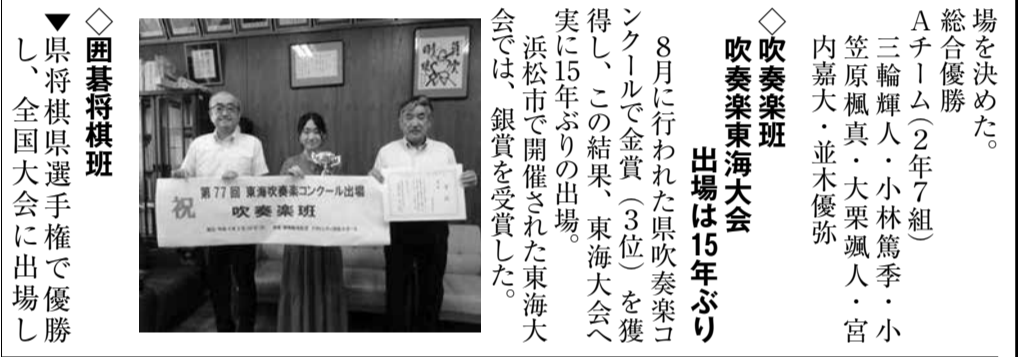 場を決めた。
総合優勝
Ａチーム(２年７組)
三輪輝人・小林篤季・小
笠原楓真・大栗颯人・宮
内嘉大・並木優弥
◇吹奏楽班
吹奏楽東海大会
出場は15年ぶり
８月に行われた県吹奏楽コ
ンクールで金賞（３位）を獲
得し、この結果、東海大会へ
実に15年ぶりの出場。
浜松市で開催された東海大
会では、銀賞を受賞した。
祝
第77回 東海吹奏楽コンクール出場
吹奏楽班
◇囲碁将棋班
▼県将棋県選手権で優勝
し、全国大会に出場し